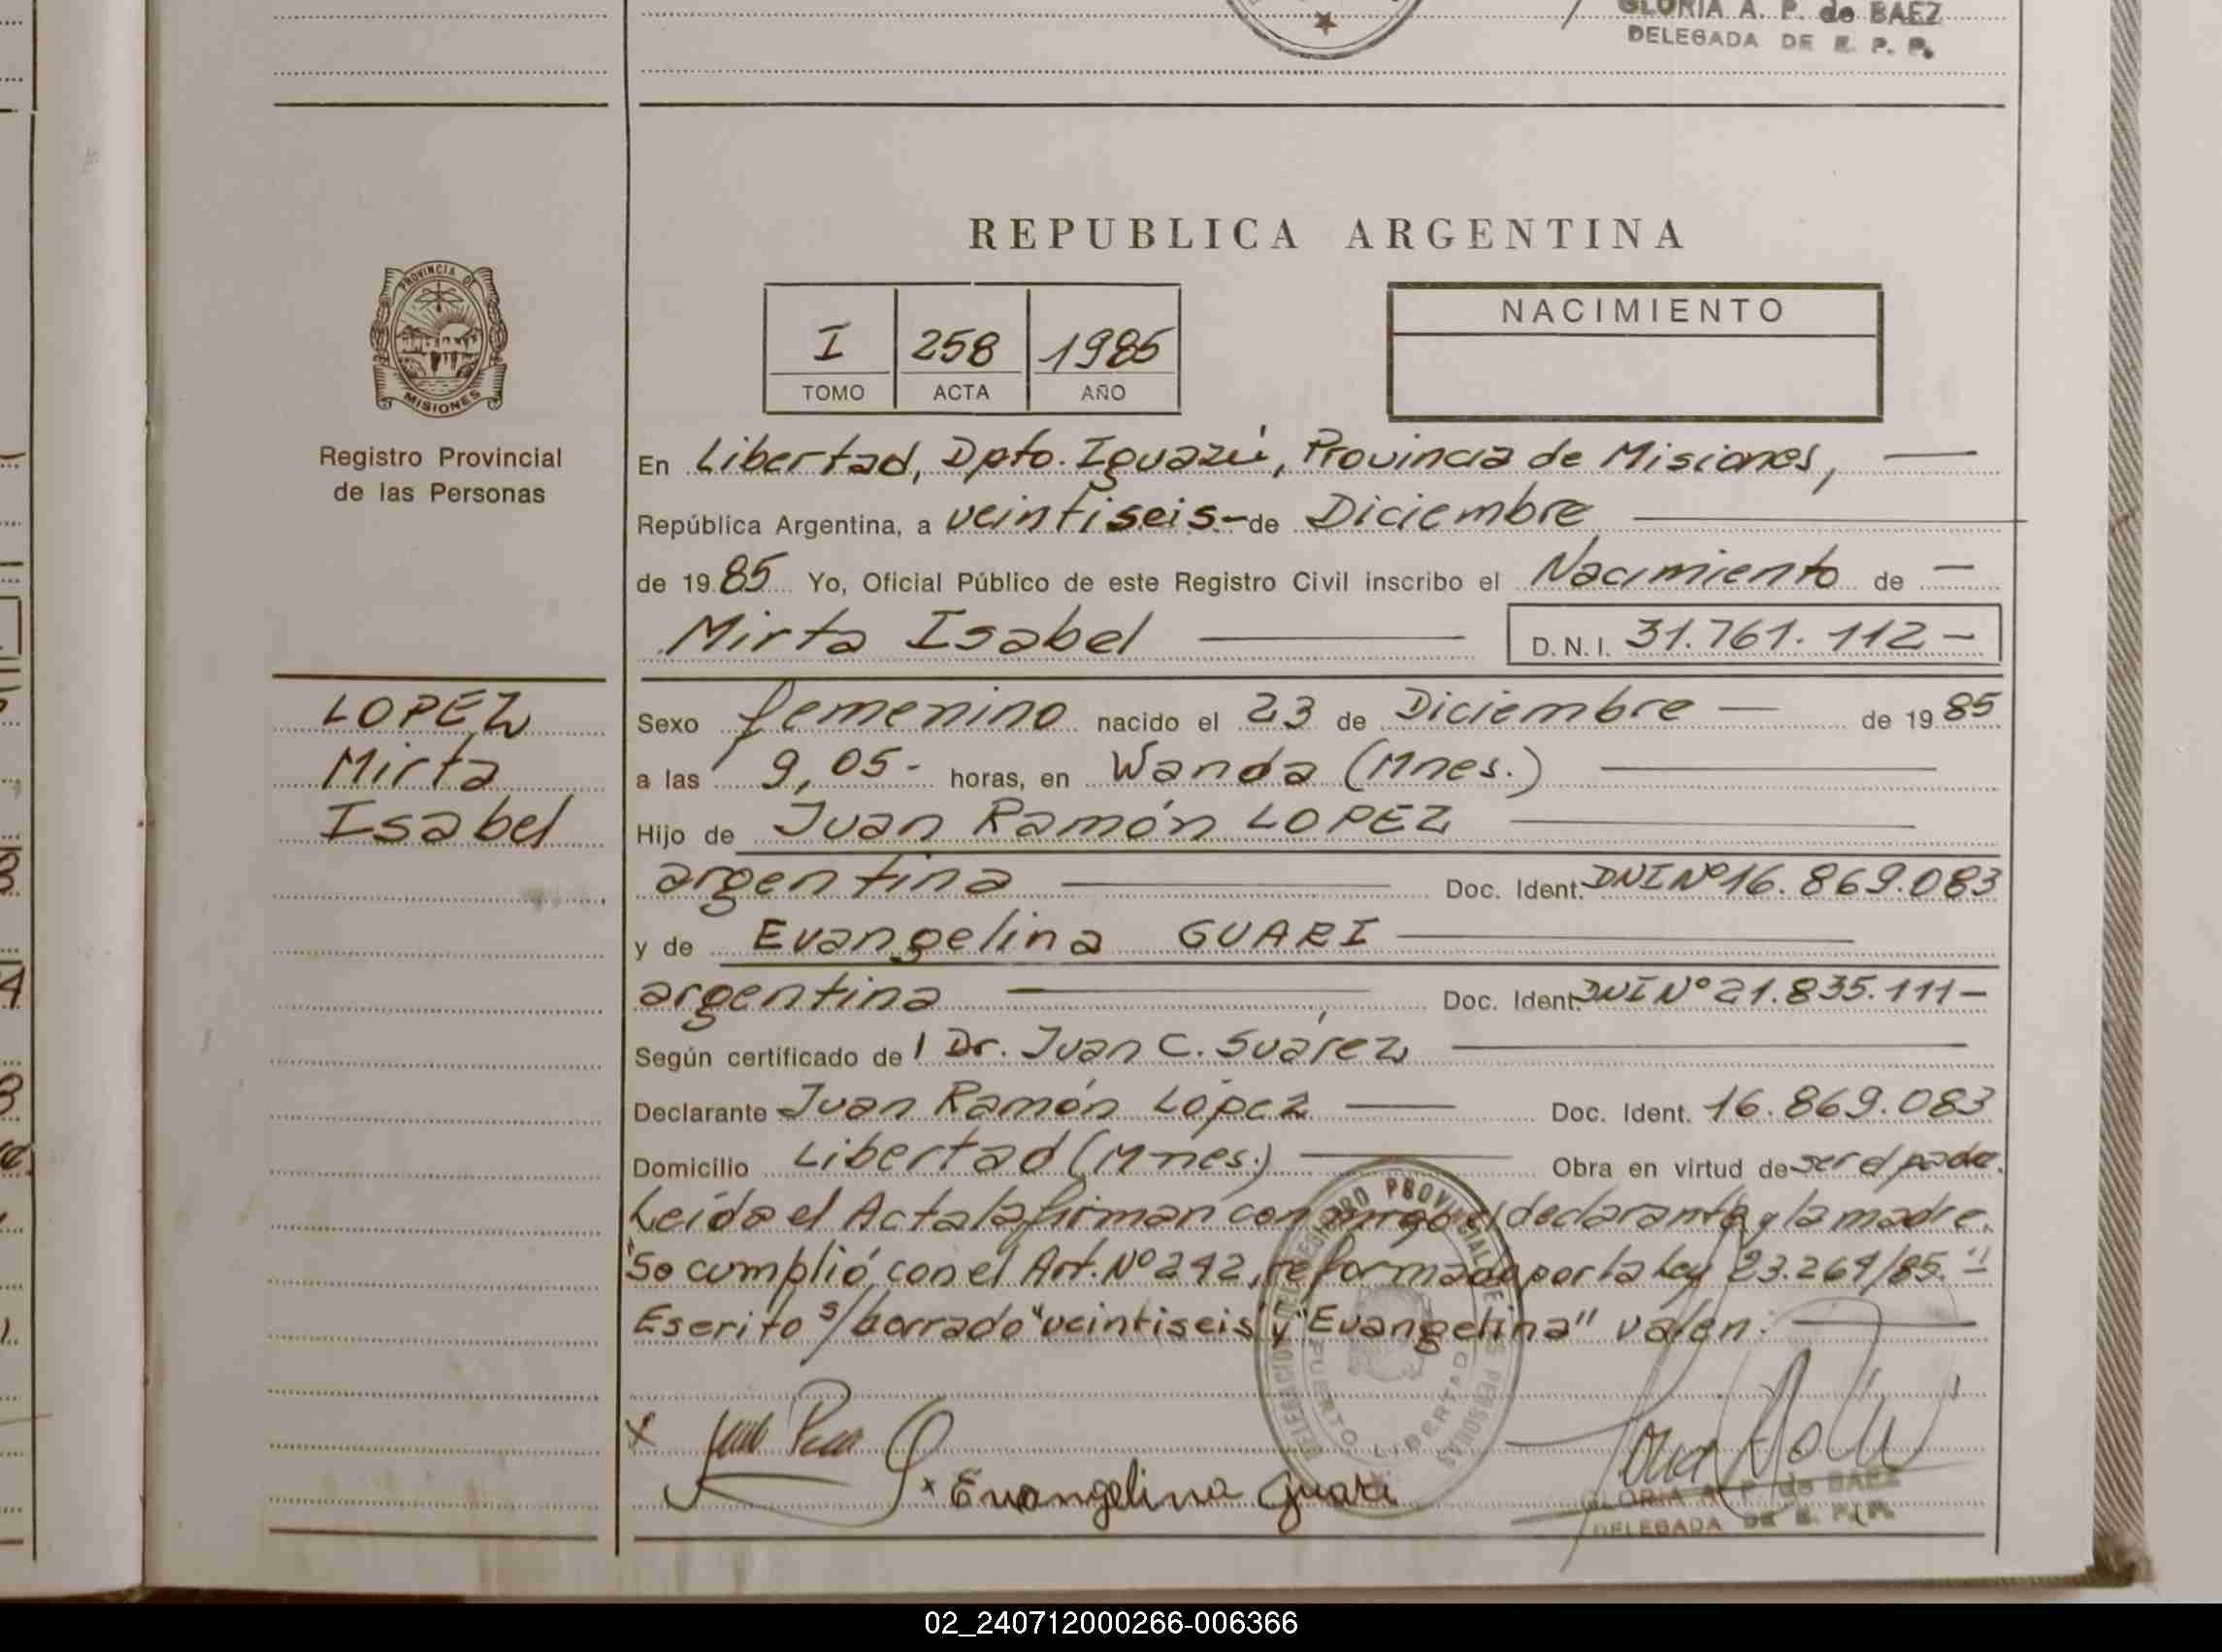 GLORIA A. P. de BAEZ
DELEGADA DE R. P. P.
REPUBLICA ARGENTINA
PROVINCIA DE
MISIONES
Registro Provincial
de las Personas
I 258 1985
TOMO ACTA AÑO
NACIMIENTO
En Libertad, Dpto. Iguazú, Provincia de Misiones, —
República Argentina, a veintiseis- de Diciembre —
de 1985 Yo, Oficial Público de este Registro Civil inscribo el Nacimiento de —
Mirta Isabel — D.N.I. 31.761.112 —
LOPEZ
Mirta
Isabel
Sexo femenino nacido el 23 de Diciembre — de 1985
a las 9,05- horas, en Wanda (Mnes.) —
Hijo de Juan Ramón LOPEZ —
argentina — Doc. Ident. DNI Nº 16.869.083
y de Evangelina GUARI —
argentina — Doc. Ident. DNI Nº 21.835.111 —
Según certificado de l Dr. Juan C. Suárez —
Declarante Juan Ramón López — Doc. Ident. 16.869.083
Domicilio Libertad (Mnes.) — Obra en virtud de ser el padre.
Leída el Acta la firman conmigo el declarante y la madre.
"Se cumplió con el Art. Nº 242, reformado por la Ley 23.264/85."
Escrito s/borrado "veintiseis" y "Evangelina" valen: —
x
x Evangelina Guari
DELEGACION REGISTRO PROVINCIAL DE LAS PERSONAS
PUERTO LIBERTAD
GLORIA A. P. de BAEZ
DELEGADA DE R. P. P.
02_240712000266-006366